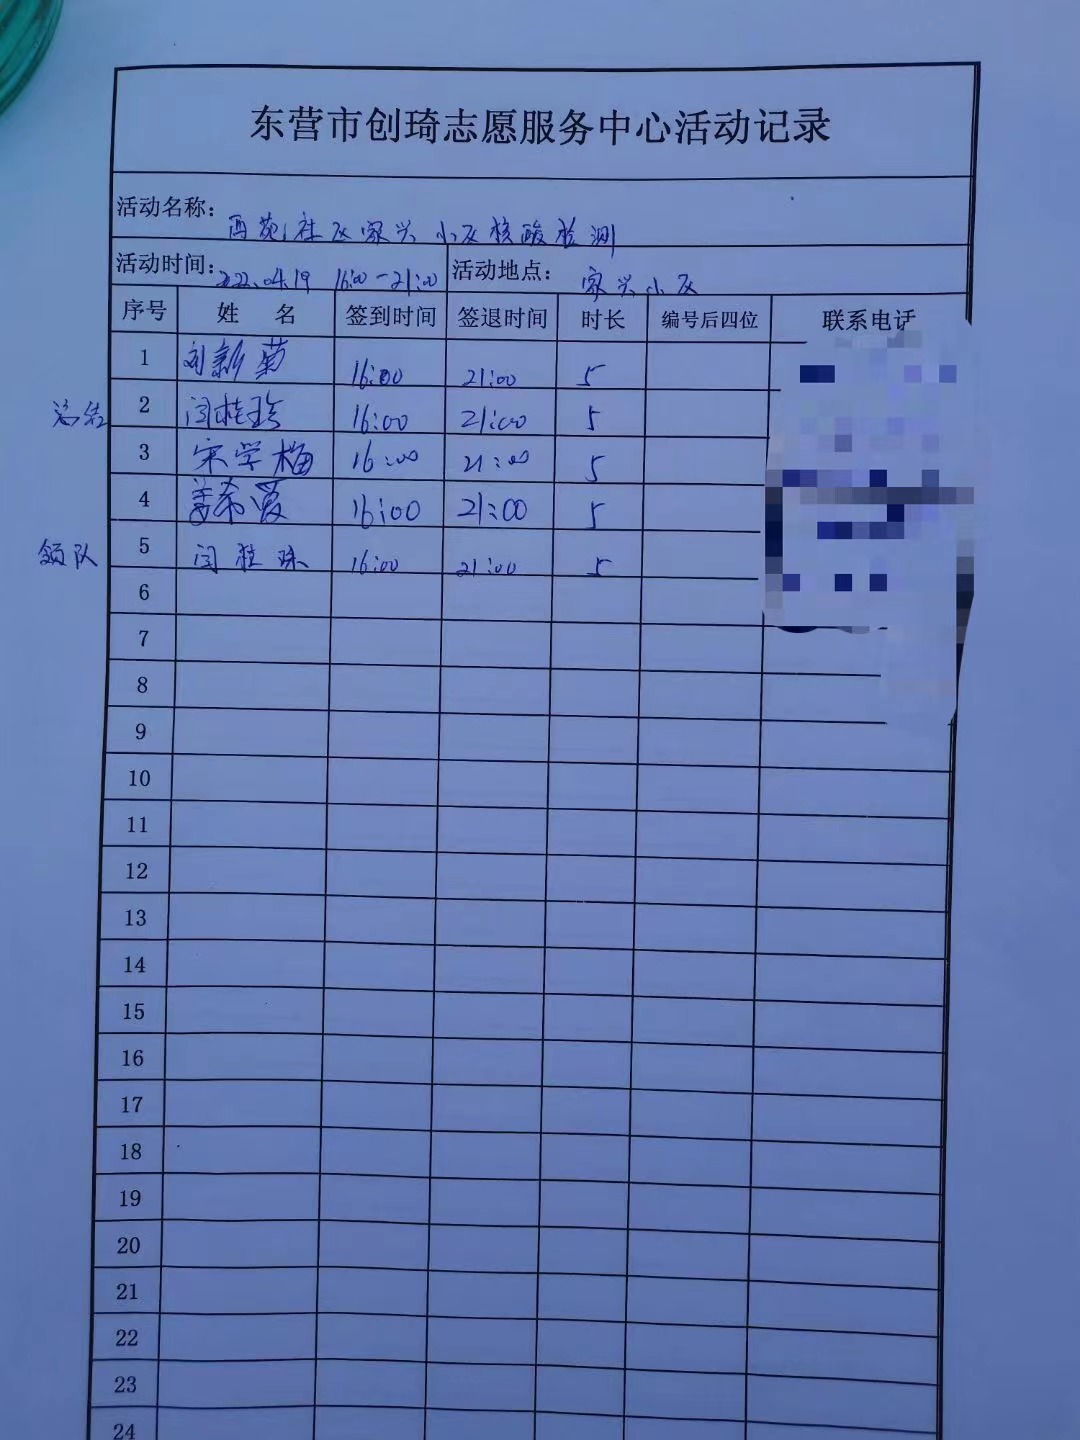 东营市创琦志愿服务中心活动记录
活动名称: 西苑社区家兴小区核酸检测
活动时间: 2022.04.19 16:00-21:00 活动地点: 家兴小区
序号 姓 名 签到时间 签退时间 时长 编号后四位 联系电话
1 刘新菊 16:00 21:00 5
总结 2 闫桂珍 16:00 21:00 5
3 宋学梅 16:00 21:00 5
4 姜希爱 16:00 21:00 5
领队 5 闫桂珠 16:00 21:00 5
6
7
8
9
10
11
12
13
14
15
16
17
18
19
20
21
22
23
24